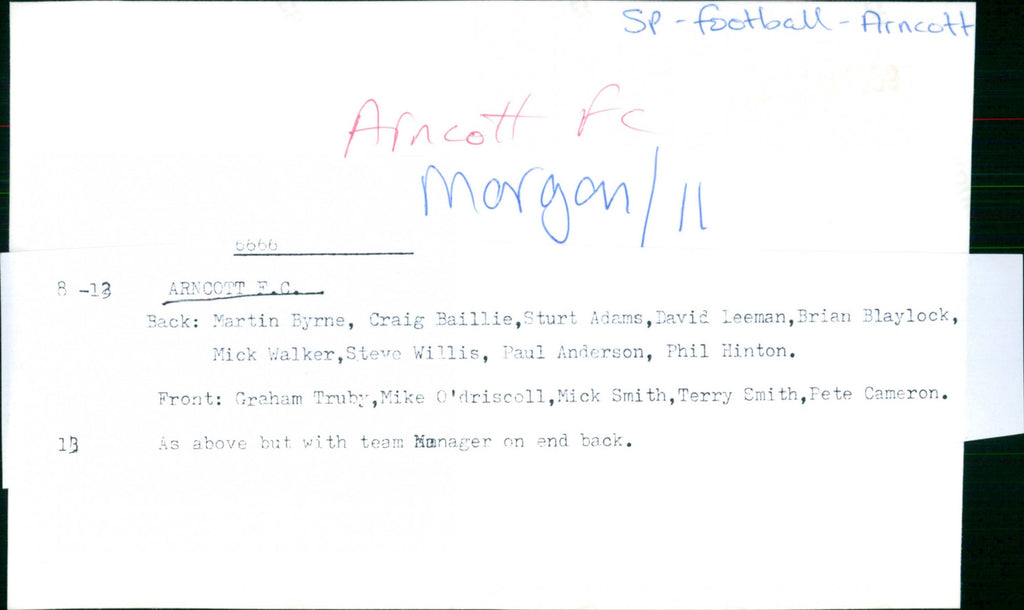 SP - football - Arncott
Arncott FC
Morgan / 11
6666
8 -13 ARNCOTT F.C.
Back: Martin Byrne, Craig Baillie,Sturt Adams,David Leeman,Brian Blaylock,
Mick Walker,Steve Willis, Paul Anderson, Phil Hinton.
Front: Graham Truby,Mike O'driscoll,Mick Smith,Terry Smith,Pete Cameron.
13 As above but with team Manager on end back.